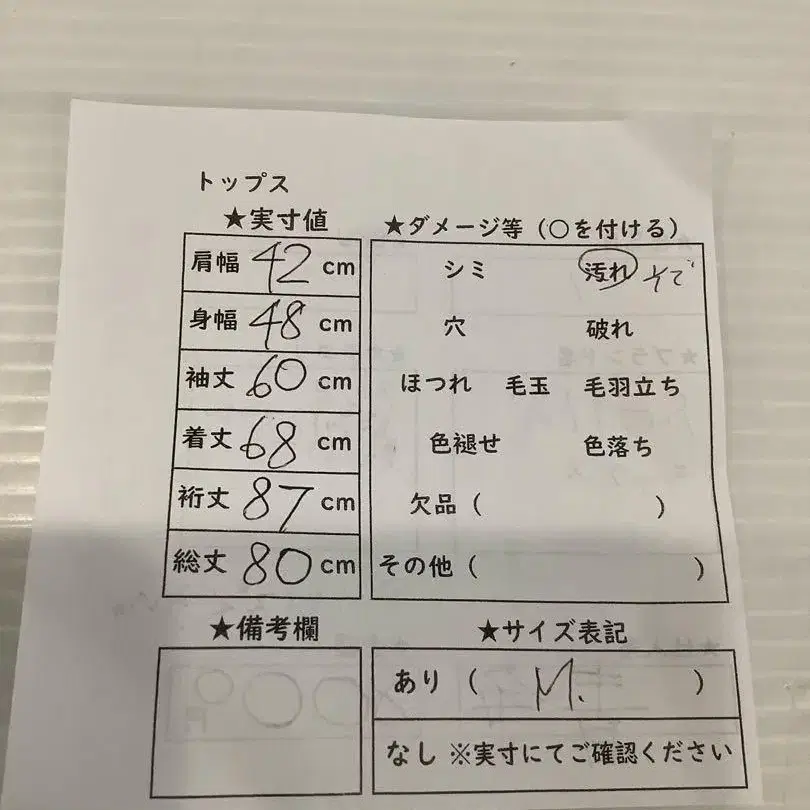 トップス
★実寸値
肩幅 42 cm
身幅 48 cm
袖丈 60 cm
着丈 68 cm
裄丈 87 cm
総丈 80 cm
★ダメージ等（○を付ける）
シミ 汚れ そで
穴 破れ
ほつれ 毛玉 毛羽立ち
色褪せ 色落ち
欠品（ ）
その他（ ）
★備考欄
★サイズ表記
あり（ M. ）
なし ※実寸にてご確認ください